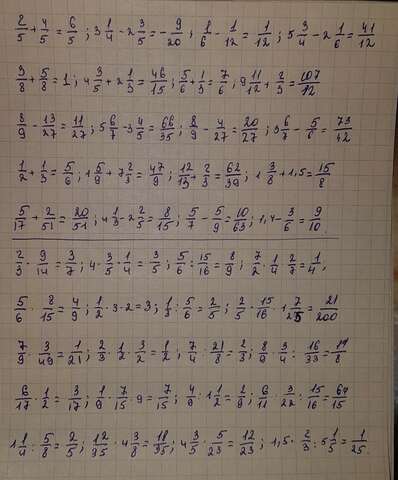 2/5 + 4/5 = 6/5; 3 1/4 - 2 3/5 = - 9/20; 1/6 - 1/12 = 1/12; 5 3/4 - 2 1/6 = 41/12
3/8 + 5/8 = 1; 4 3/5 + 2 1/3 = 46/15; 5/6 + 1/3 = 7/6; 9 11/12 + 2/3 = 107/12
8/9 - 13/27 = 11/27; 5 6/7 - 3 4/5 = 66/35; 8/9 - 4/27 = 20/27; 3 6/7 - 5/6 = 73/42
1/2 + 1/3 = 5/6; 1 5/9 + 7 2/3 = 47/9; 12/13 + 2/3 = 62/39; 1 3/8 + 1,5 = 15/8
5/17 + 2/51 = 20/51; 4 1/3 - 2 2/5 = 8/15; 5/7 - 5/9 = 10/63; 1,4 - 3/6 = 9/10.
2/3 · 9/14 = 3/7; 4 · 3/5 · 1/4 = 3/5; 5/6 : 15/16 = 8/9; 7/2 · 1/4 · 2/7 = 1/4;
5/6 · 8/15 = 4/9; 1/2 · 3 · 2 = 3; 1/3 : 5/6 = 2/5; 2/5 · 15/16 · 1 7/25 = 21/200
7/9 · 3/49 = 1/21; 2/3 · 1/2 · 3/2 = 1/2; 7/4 : 21/8 = 2/3; 8/9 · 3/4 : 16/33 = 11/8
6/17 · 1/2 = 3/17; 1/9 · 7/15 · 9 = 7/15; 4/9 · 1 1/2 = 2/3; 6/11 · 3/22 : 15/16 = 64/15
1 1/4 : 5/8 = 2/5; 12/35 · 4 3/8 = 18/35; 4 3/5 · 5/23 = 12/23; 1,5 · 2/3 : 5 1/5 = 1/25.